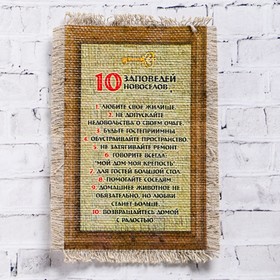 10 ЗАПОВЕДЕЙ
НОВОСЕЛОВ
1. ЛЮБИТЕ СВОЕ ЖИЛИЩЕ
2. НЕ ДОПУСКАЙТЕ
НЕДОВОЛЬСТВА О СВОЕМ ОЧАГЕ
3. БУДЬТЕ ГОСТЕПРИИМНЫ
4. ОБУСТРАИВАЙТЕ ПРОСТРАНСТВО
5. НЕ ЗАТЯГИВАЙТЕ РЕМОНТ
6. ГОВОРИТЕ ВСЕГДА:
"МОЙ ДОМ МОЯ КРЕПОСТЬ"
7. ДЛЯ ГОСТЕЙ БОЛЬШОЙ СТОЛ
8. ПОМОГАЙТЕ СОСЕДЯМ
9. ДОМАШНЕЕ ЖИВОТНОЕ НЕ
ОБЯЗАТЕЛЬНО, НО ЛЮБВИ
СТАНЕТ БОЛЬШЕ
10. ВОЗВРАЩАЙТЕСЬ ДОМОЙ
С РАДОСТЬЮ